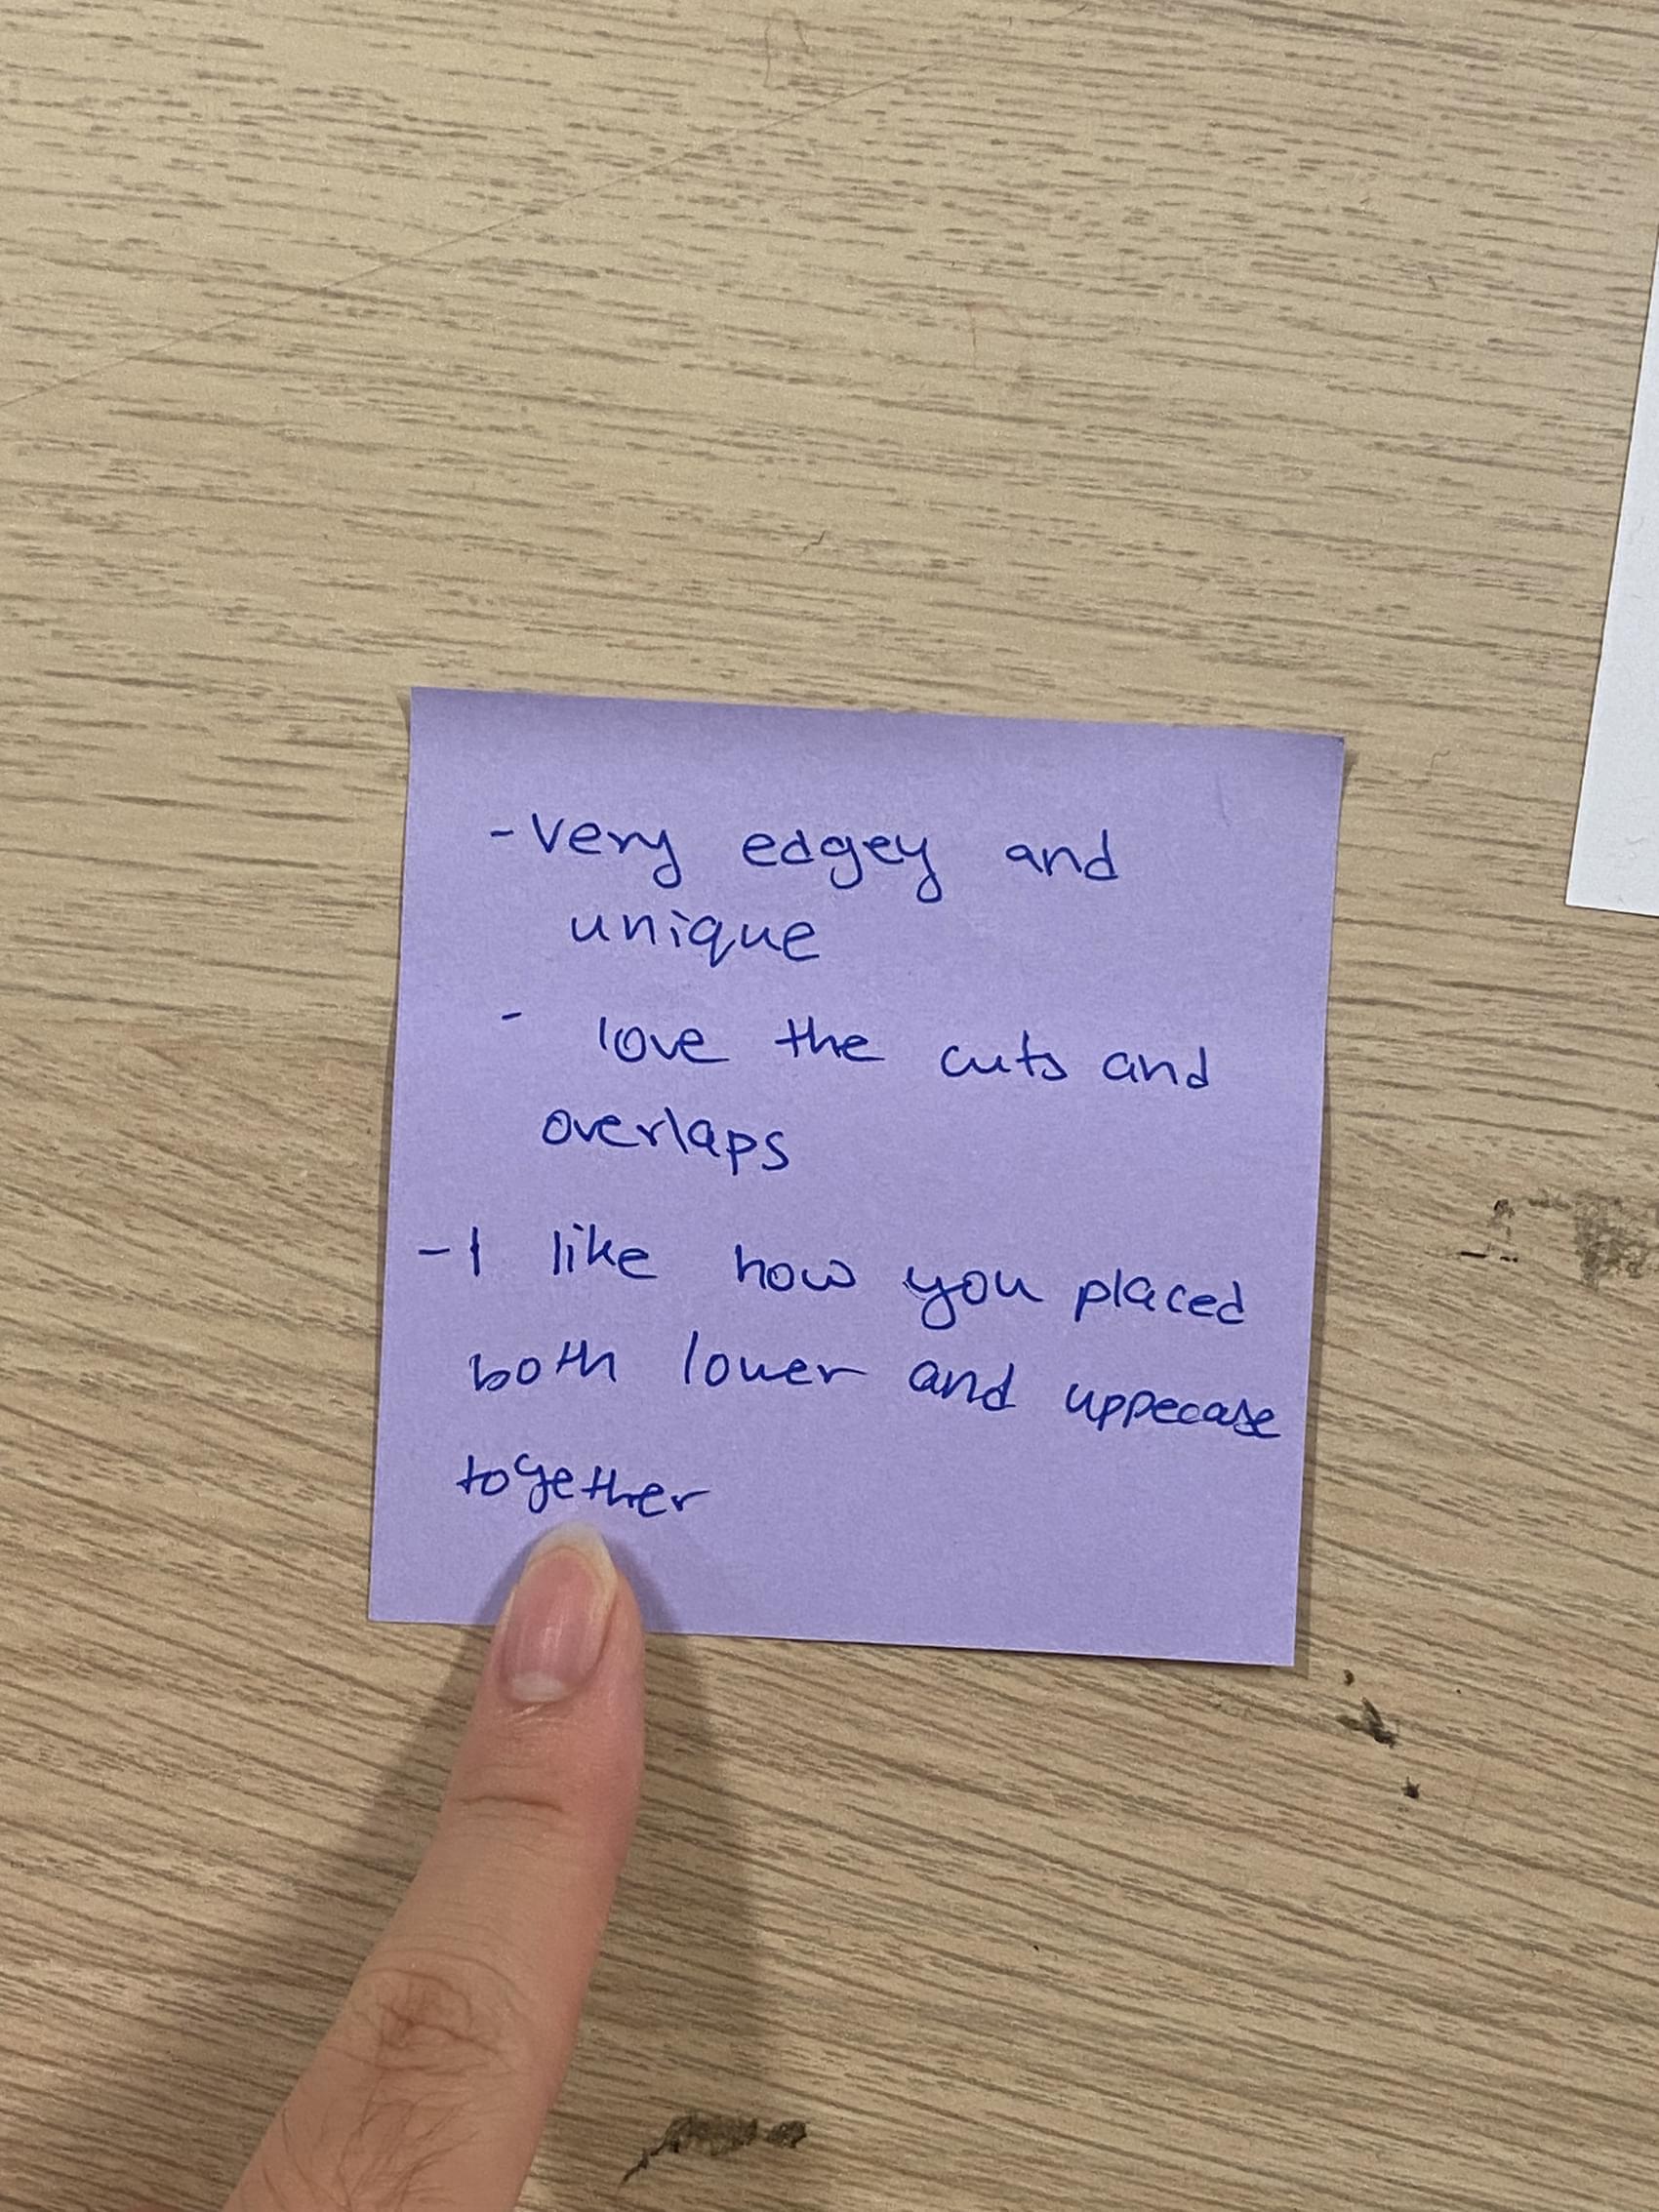 - Very edgey and
unique
- love the cuts and
overlaps
- I like how you placed
both lower and uppecase
together